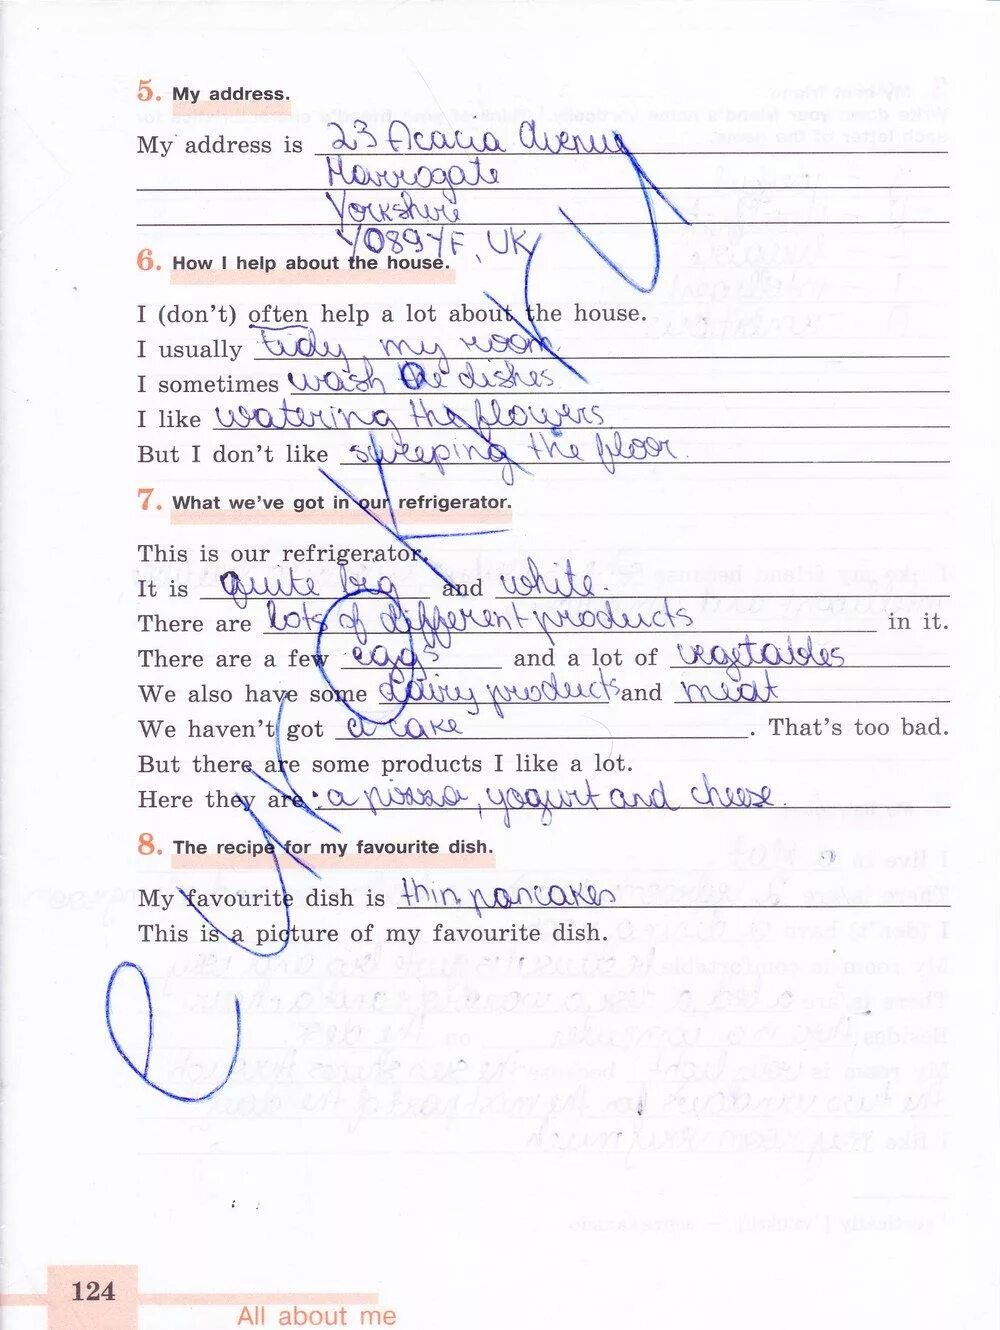 5. My address.
My address is 23 Acacia Avenue
Harrogate
Yorkshire
YO89YF, UK
6. How I help about the house.
I (don't) often help a lot about the house.
I usually tidy my room.
I sometimes wash the dishes
I like watering the flowers
But I don't like sweeping the floor.
7. What we've got in our refrigerator.
This is our refrigerator.
It is quite big and white.
There are lots of different products in it.
There are a few eggs and a lot of vegetables
We also have some dairy products and meat
We haven't got a cake . That's too bad.
But there are some products I like a lot.
Here they are: a pizza, yogurt and cheese.
8. The recipe for my favourite dish.
My favourite dish is thin pancakes
This is a picture of my favourite dish.
euroki.ru
124
All about me